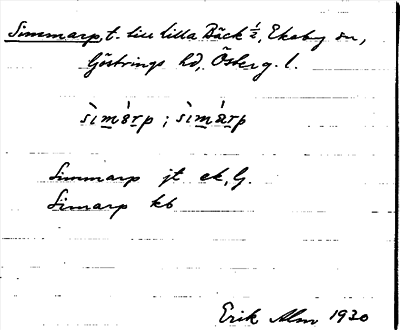 Simmarp, t. till lilla Bäck ½, Ekeby sn,
Göstrings hd, Österg. l.
sìmárp ; sìmárp
Simmarp jt ek, G.
Simarp kb
Erik Alm 1930